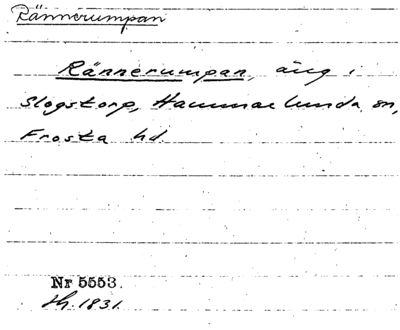 Rännerumpan
Rännerumpan, äng i
Slogstorp, Hammarlunda sn,
Frosta hd.
Nr 5553.
1831.